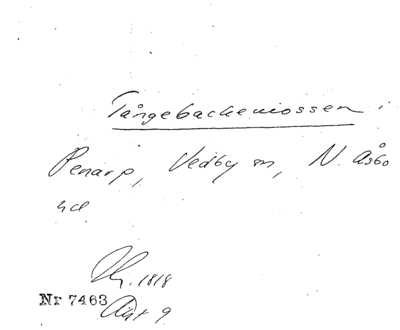 Tångebackemossen i
Penarp, Vedby sn, N. Åsbo
hd
1818
Nr 7463
Akt 9